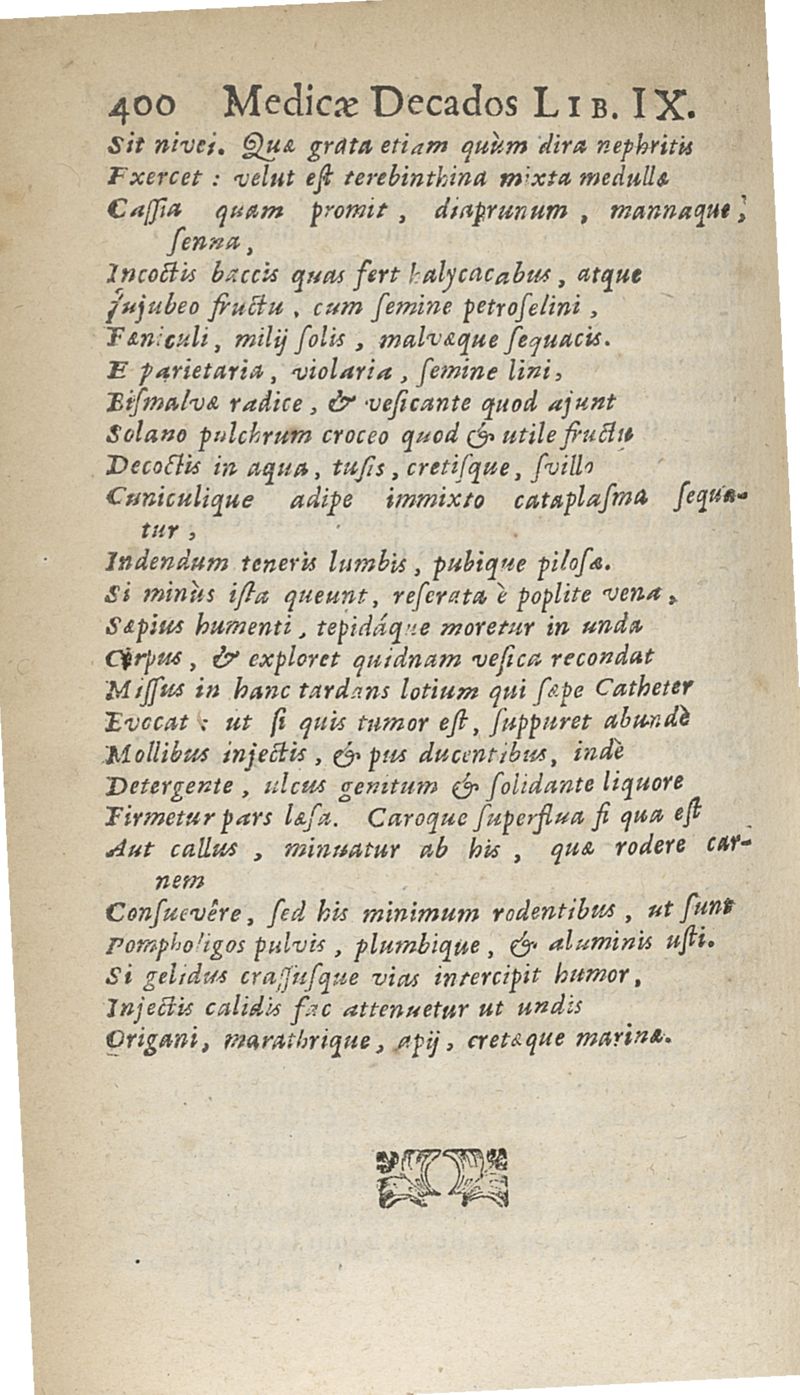 400 Medicæ Decados LIB. IX.
Sit nivei. Quæ grata etiam quùm dira nephritis
Exercet : velut est terebinthina mixta medullæ
Caſſia quam promit , diaprunum , mannaque ,
ſenna ,
Incoctis baccis quas fert halycacabus , atque
Jujubeo fructu , cum ſemine petroſelini ,
Fæniculi , milij ſolis , malvæque ſequacis.
E parietaria , violaria , ſemine lini ,
Biſmalvæ radice , & veſicante quod ajunt
Solano pulchrum croceo quod & utile fructu
Decoctis in aqua , tuſis , cretiſque , ſvillo
Cuniculique adipe immixto cataplaſma ſequa-
tur ,
Indendum teneris lumbis , pubique piloſæ.
Si minùs iſta queunt , reſerata è poplite vena ,
Sæpius humenti , tepidáque moretur in unda
Corpus , & exploret quidnam veſica recondat
Miſſus in hanc tardans lotium qui ſæpe Catheter
Evocat : ut ſi quis tumor eſt , ſuppuret abundè
Mollibus injectis , & pus ducentibus , indè
Detergente , ulcus genitum & ſolidante liquore
Firmetur pars læſa. Caroque ſuperflua ſi qua eſt
Aut callus , minuatur ab his , quæ rodere car-
nem
Conſuevêre , ſed his minimum rodentibus , ut ſunt
Pompholigos pulvis , plumbique , & aluminis uſti.
Si gelidus craſſuſque vias intercipit humor ,
Injectis calidis fac attenuetur ut undis
Origani , marathrique , apij , cretæque marinæ.